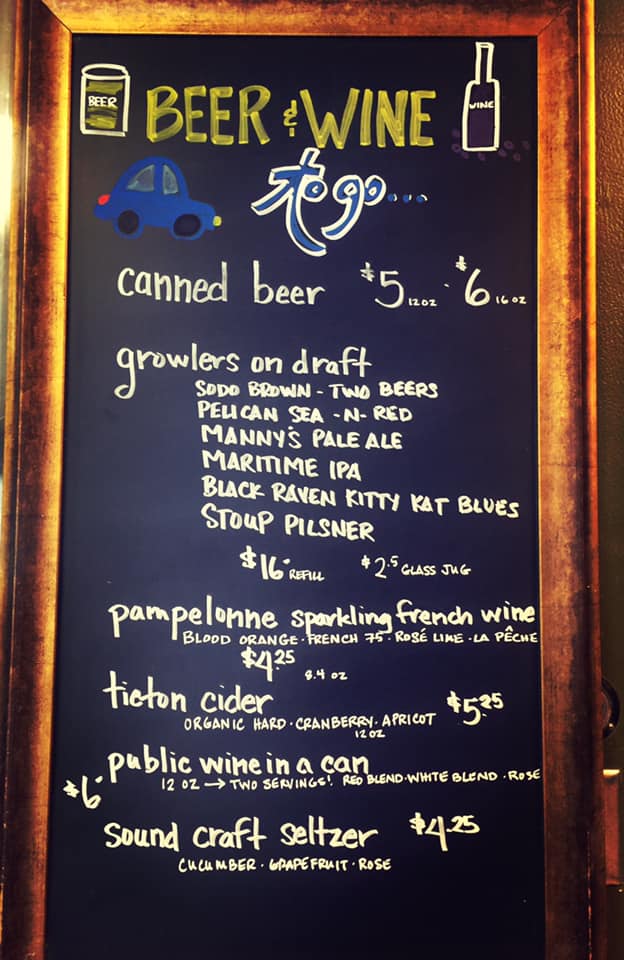 BEER
BEER & WINE
WINE
to go...
canned beer $5 12oz · $6 16oz
growlers on draft
SODO BROWN - TWO BEERS
PELICAN SEA -N- RED
MANNY'S PALE ALE
MARITIME IPA
BLACK RAVEN KITTY KAT BLUES
STOUP PILSNER
$16· REFILL $2.5 GLASS JUG
pampelonne sparkling french wine
BLOOD ORANGE · FRENCH 75 · ROSÉ LIME · LA PÊCHE
$4.25 8.4 oz
tieton cider $5.25
ORGANIC HARD · CRANBERRY · APRICOT
12oz
public wine in a can
$6· 12 OZ → TWO SERVINGS! RED BLEND · WHITE BLEND · ROSE
sound craft seltzer $4.25
CUCUMBER · GRAPEFRUIT · ROSE